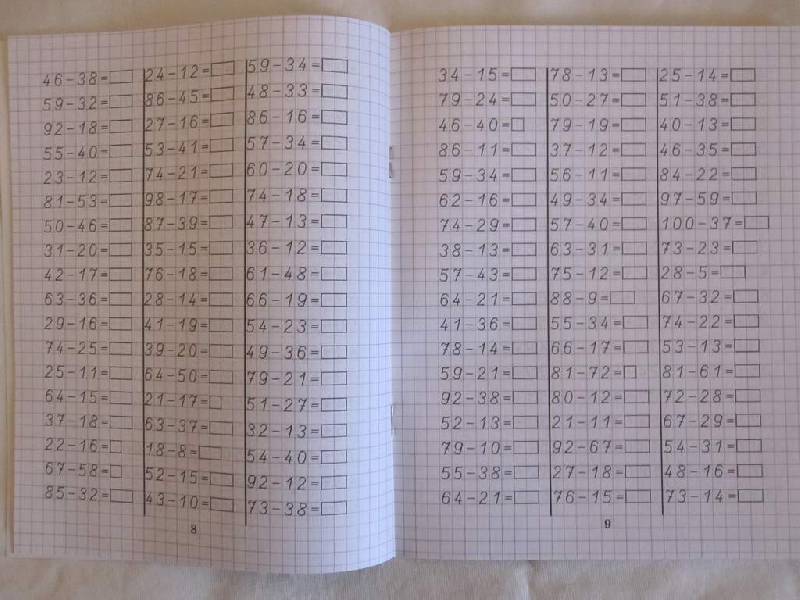 46-38= 24-12= 59-34=
59-32= 86-45= 48-33=
92-18= 27-16= 86-16=
55-40= 53-41= 57-34=
23-12= 74-21= 60-20=
81-53= 98-17= 74-18=
50-46= 87-39= 47-13=
31-20= 35-15= 36-12=
42-17= 76-18= 61-48=
63-36= 28-14= 66-19=
29-16= 41-19= 54-23=
74-25= 39-20= 49-36=
25-11= 64-50= 79-21=
64-15= 21-17= 51-27=
37-18= 63-37= 32-13=
22-16= 18-8= 54-40=
67-58= 52-15= 92-12=
85-32= 43-10= 73-38=
8
34-15= 78-13= 25-14=
79-24= 50-27= 51-38=
46-40= 79-19= 40-13=
86-11= 37-12= 46-35=
59-34= 56-11= 84-22=
62-16= 49-34= 97-59=
74-29= 57-40= 100-37=
38-13= 63-31= 73-23=
57-43= 75-12= 28-5=
64-21= 88-9= 67-32=
41-36= 55-34= 74-22=
78-14= 66-17= 53-13=
59-21= 81-72= 81-61=
92-38= 80-12= 72-28=
52-13= 21-11= 67-29=
79-10= 92-67= 54-31=
55-38= 27-18= 48-16=
64-21= 76-15= 73-14=
9